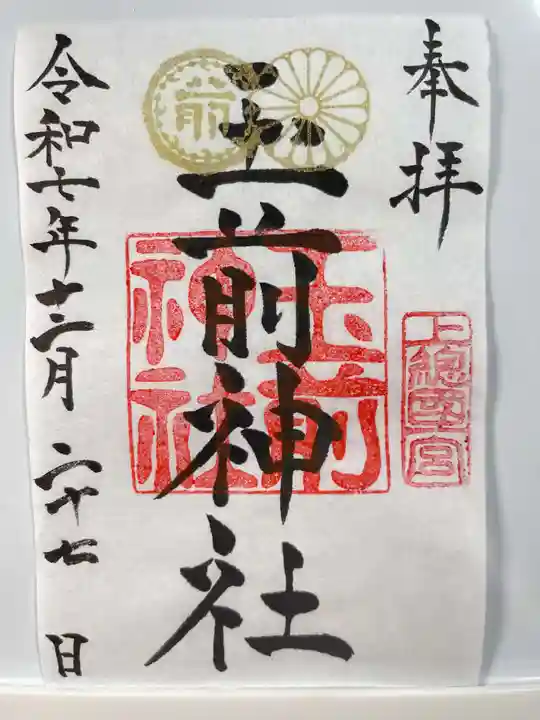 奉拝
上總國一宮
玉前神社
玉前神社
前
令和七年十二月二十七日